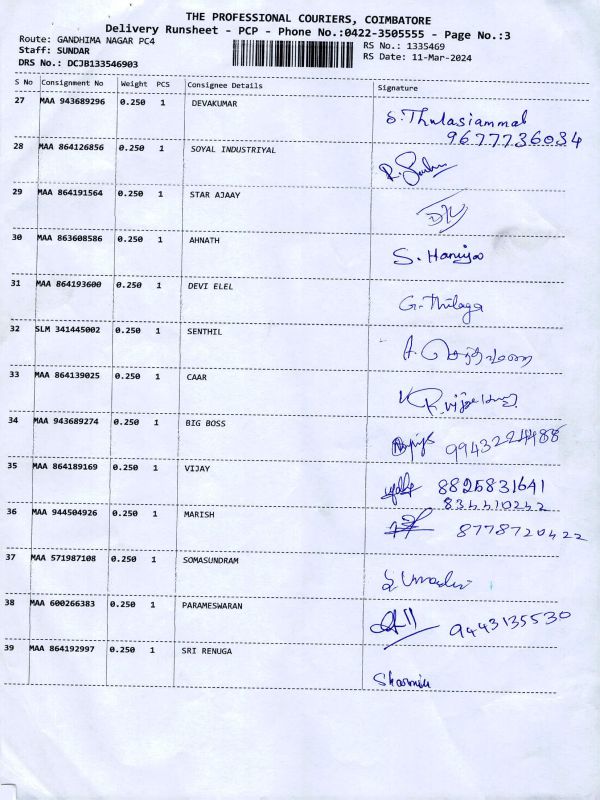 THE PROFESSIONAL COURIERS, COIMBATORE
Delivery Runsheet - PCP - Phone No.:0422-3505555 - Page No.:3
Route: GANDHIMA NAGAR PC4 RS No.: 1335469
Staff: SUNDAR RS Date: 11-Mar-2024
DRS No.: DCJB133546903
S No Consignment No Weight PCS Consignee Details Signature
27 MAA 943689296 0.250 1 DEVAKUMAR S. Thulasiammal
9677736034
28 MAA 864126856 0.250 1 SOYAL INDUSTRIYAL
29 MAA 864191564 0.250 1 STAR AJAAY
30 MAA 863608586 0.250 1 AHNATH
31 MAA 864193600 0.250 1 DEVI ELEL G. Thilaga
32 SLM 341445002 0.250 1 SENTHIL
33 MAA 864139025 0.250 1 CAAR
34 MAA 943689274 0.250 1 BIG BOSS 9943224488
35 MAA 864189169 0.250 1 VIJAY 8825831641
36 MAA 944504926 0.250 1 MARISH 8778720422
37 MAA 571987108 0.250 1 SOMASUNDRAM
38 MAA 600266383 0.250 1 PARAMESWARAN 9443135530
39 MAA 864192997 0.250 1 SRI RENUGA